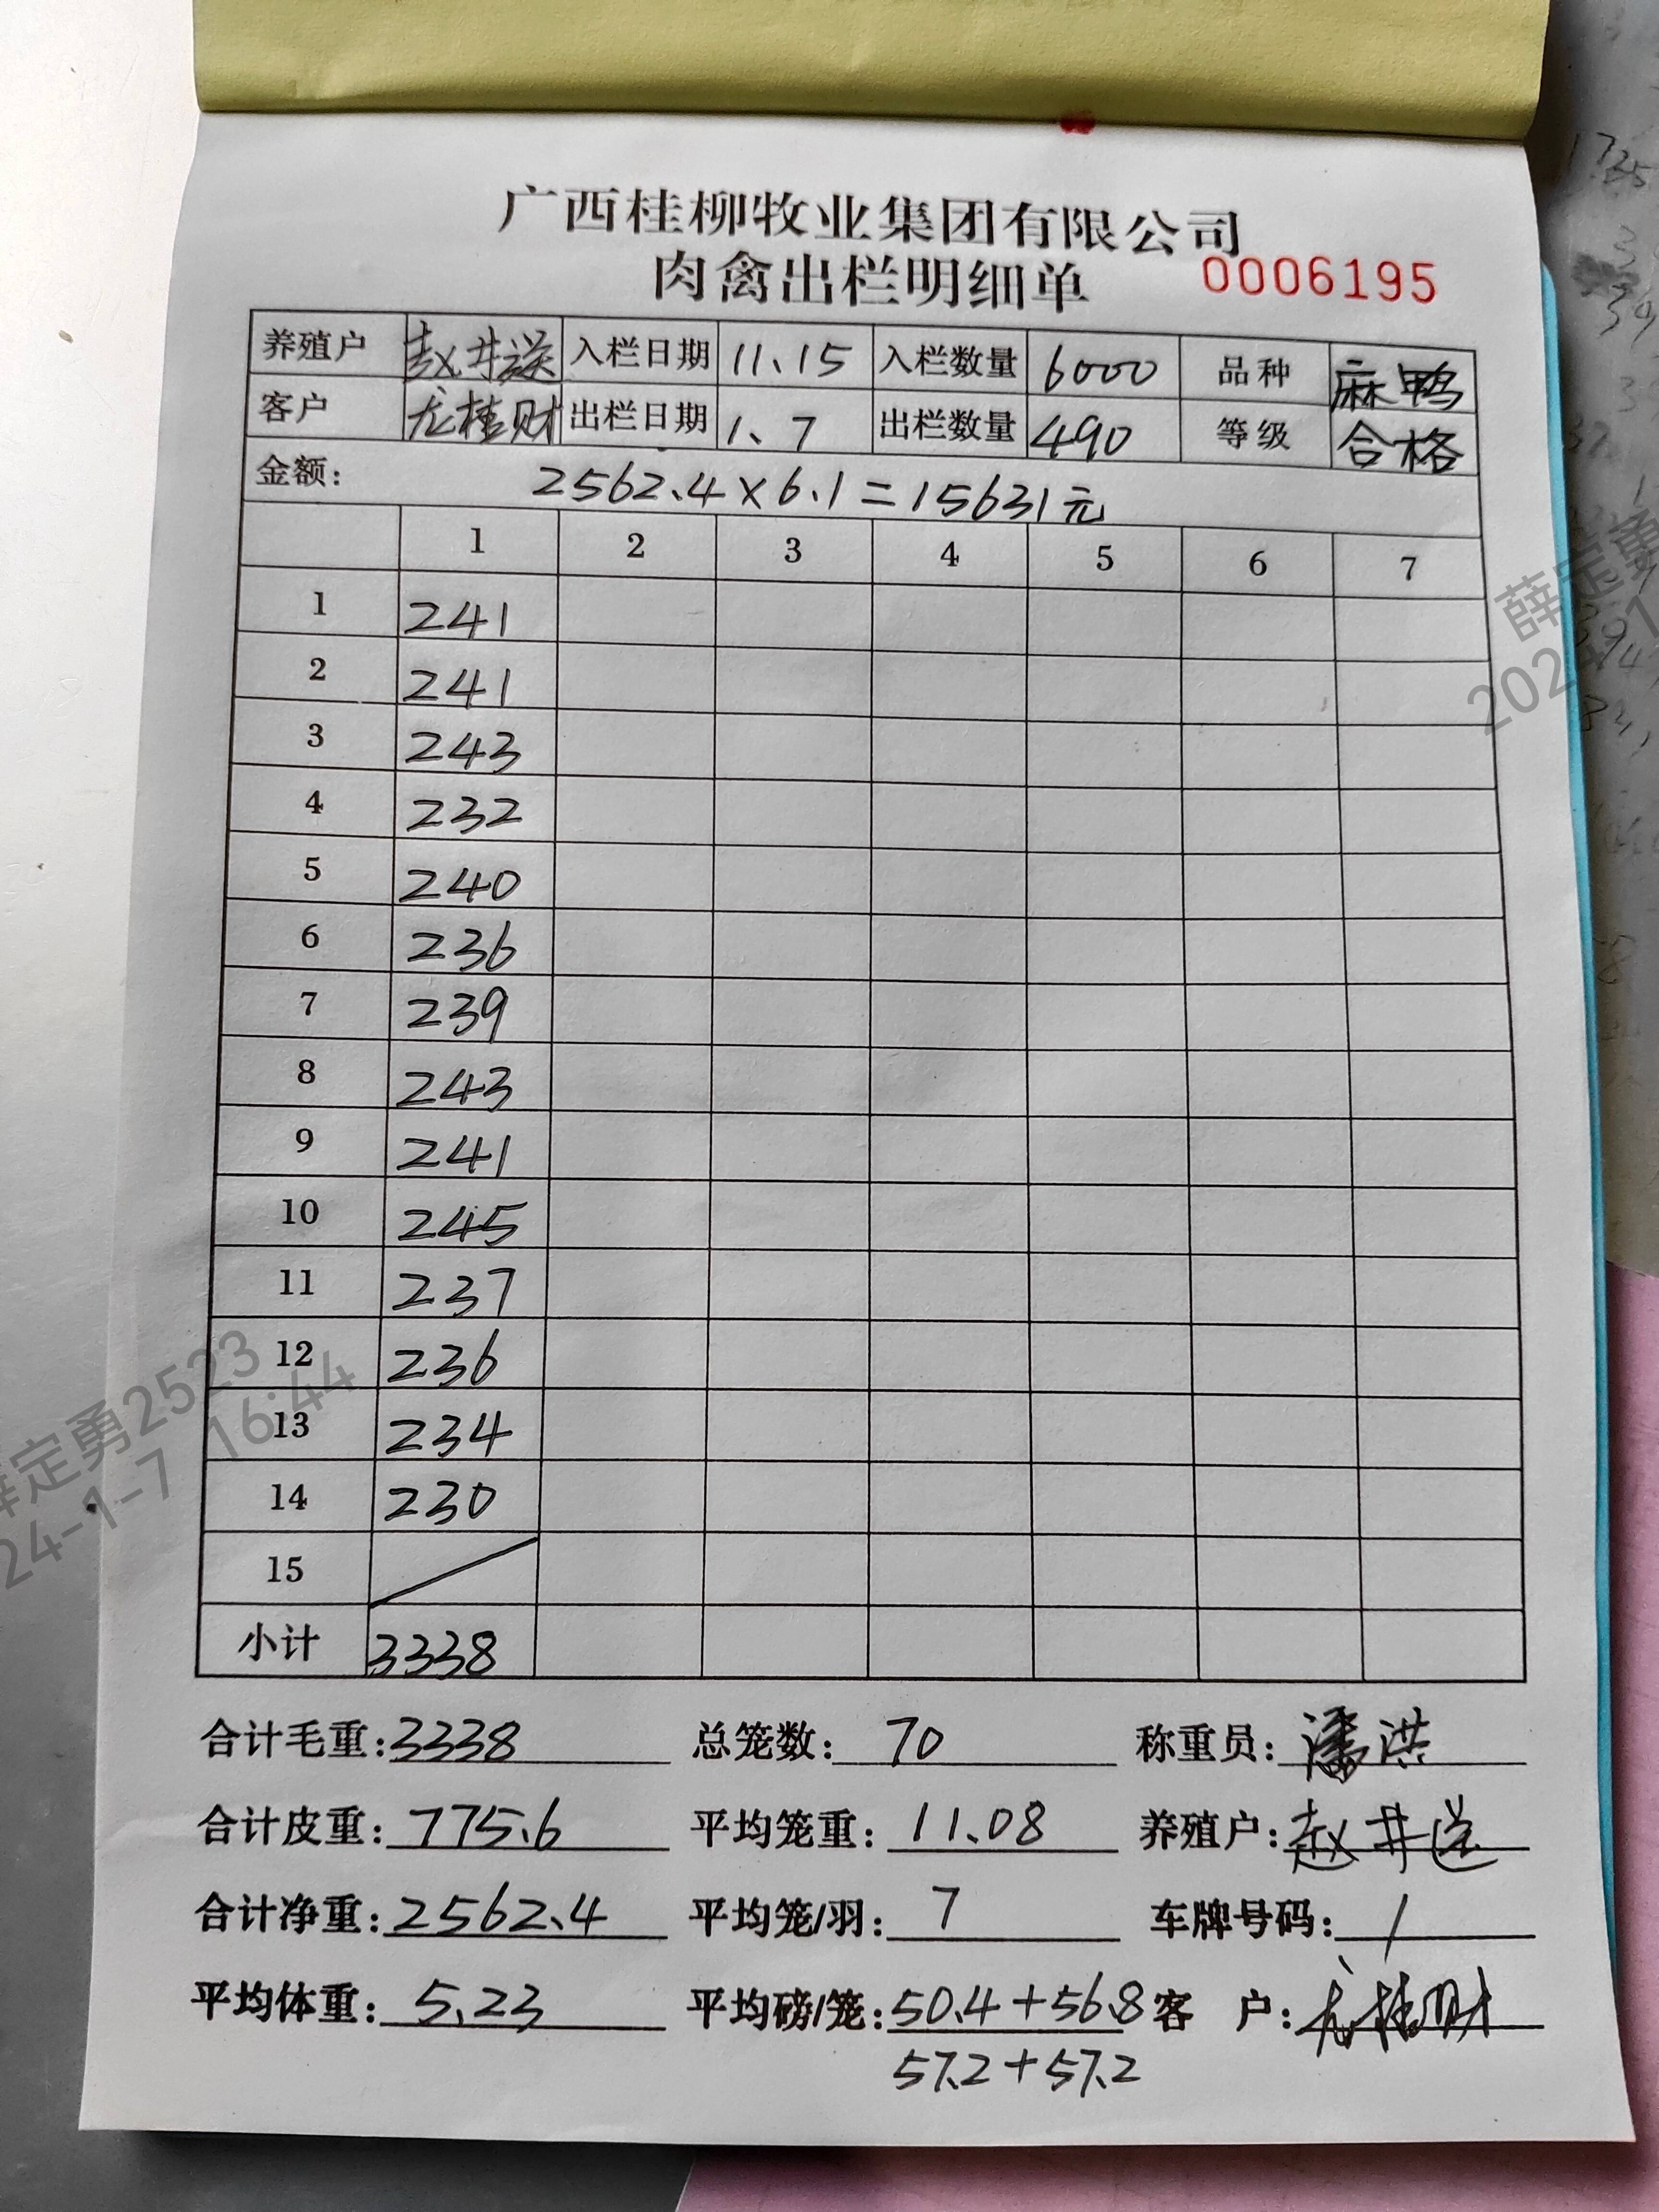 广西桂柳牧业集团有限公司
肉禽出栏明细单 0006195
养殖户 赵井送 入栏日期 11、15 入栏数量 6000 品种 麻鸭
客户 龙桂财 出栏日期 1、7 出栏数量 490 等级 合格
金额: 2562.4×6.1=15631元
1 2 3 4 5 6 7
1 241
2 241
3 243
4 232
5 240
6 236
7 239
8 243
9 241
10 245
11 237
12 236
13 234
14 230
15
小计 3338
合计毛重:3338 总笼数:70 称重员:潘洪
合计皮重:775.6 平均笼重:11.08 养殖户:赵井送
合计净重:2562.4 平均笼/羽:7 车牌号码:/
平均体重:5.23 平均磅/笼:50.4+56.8 客户:龙桂财
57.2+57.2
薛定勇
定勇2523
24-1-7 16:44